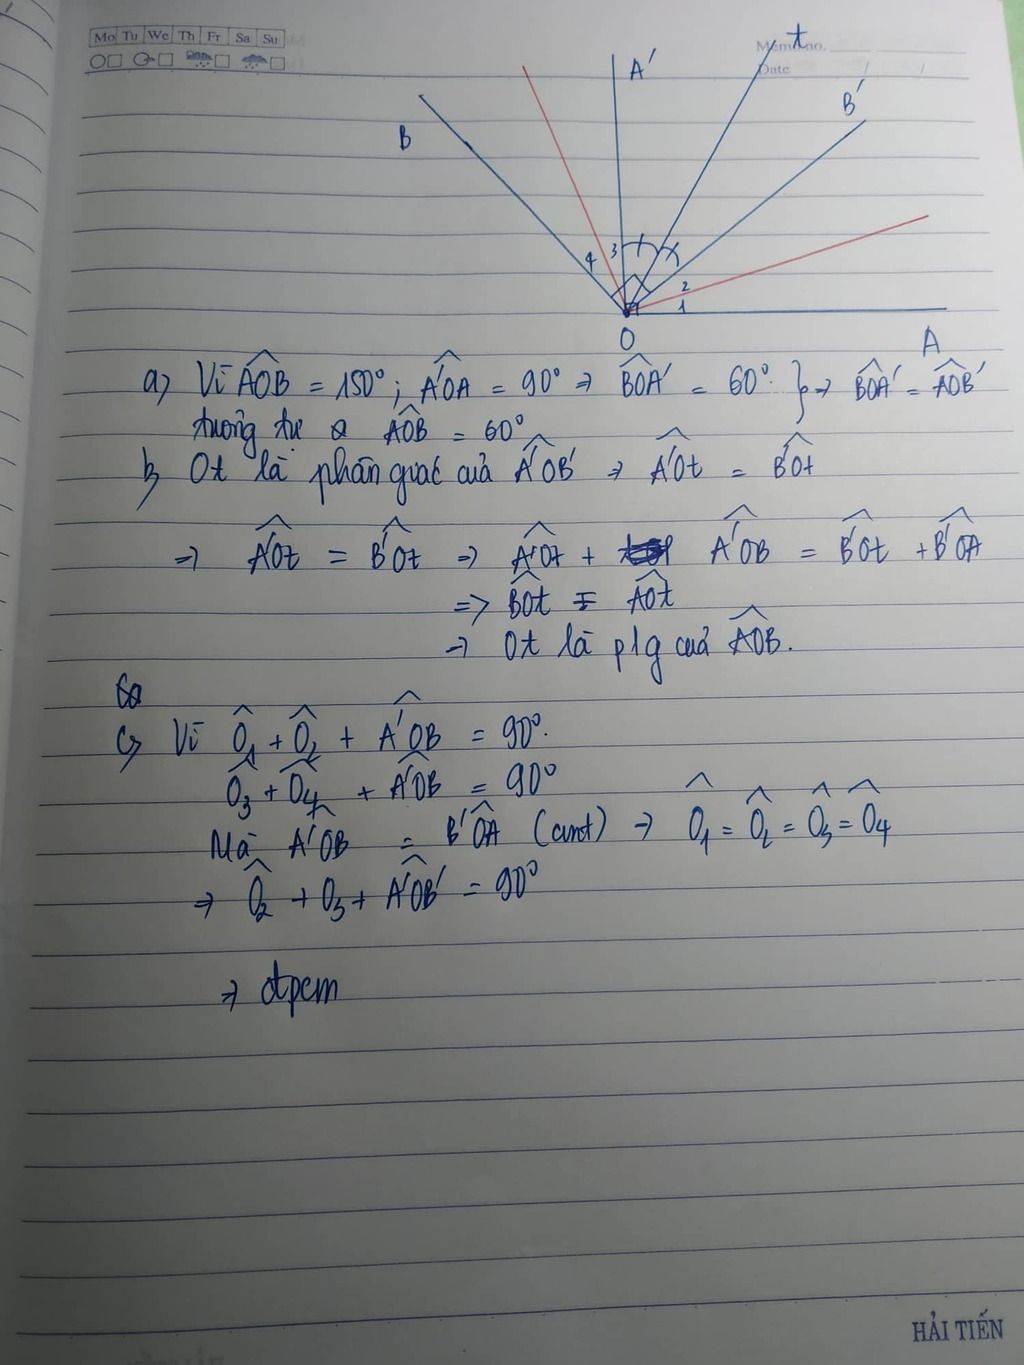 Mo Tu We Th Fr Sa Su
Memo no.
Date / /
B
A'
t
B'
4 3 2 1
O
A
a) Vì AÔB = 150°; A'ÔA = 90° => BÔA' = 60°. } => BÔA' = AÔB'
tương tự AÔB = 60°
b) Ot là phân giác của A'ÔB' => A'Ôt = B'Ôt
=> A'Ôt = B'Ôt => A'Ôt + A'ÔB = B'Ôt + B'ÔA
=> BÔt = AÔt
=> Ot là plg cuả AÔB.
c) Vì Ô1 + Ô2 + A'ÔB = 90°.
Ô3 + Ô4 + A'ÔB = 90°
Mà A'ÔB = B'ÔA (cmt) => Ô1 = Ô2 = Ô3 = Ô4
=> Ô2 + O3 + A'ÔB' = 90°
=> đpcm
HẢI TIẾN